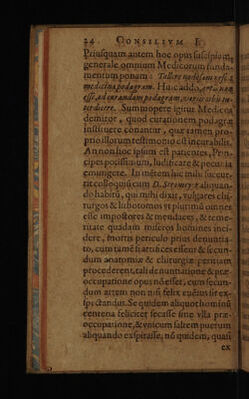 24 CONSILIVM I.
Priusquam autem hoc opus suscipiam,
generale omnium Medicorum funda-
mentum ponam: Tollere nodosam nescit
medicina podagram. Huic addo,
esse, ad curandam podagram,
Summopere igitur Medicos
demiror, quod curationem podagræ
instituere conantur, quæ tamen pro-
prio illorum testimonio est incurabilis.
An non hoc ipsum est patentes, Prin-
cipes potissimum, ludificare & pecunia
emungere. In mētem hic mihi succur-
rit colloquii cum D. aliquan-
do habiti, qui mihi dixit, vulgares chi-
rurgos & lithotomos vt plurimū omnes
esse impostores & mendaces, & teme-
ritate quadam miseros homines inci-
dere, mortis periculo prius denuntia-
to, cum tamē si artifices essent & secun-
dum anatomiæ & chirurgiæ peritiam
procederent, tali denuntiatione & præ-
occupatione opus nō esset, cum secun-
dum artem non nisi felix euētus sit ex-
spectandus. Se quidem aliquot homini
centena feliciter secasse sine vlla præ-
occupatione, & vnicum saltem puerum
aliquando exspirasse, nō quidem, quasi
ex